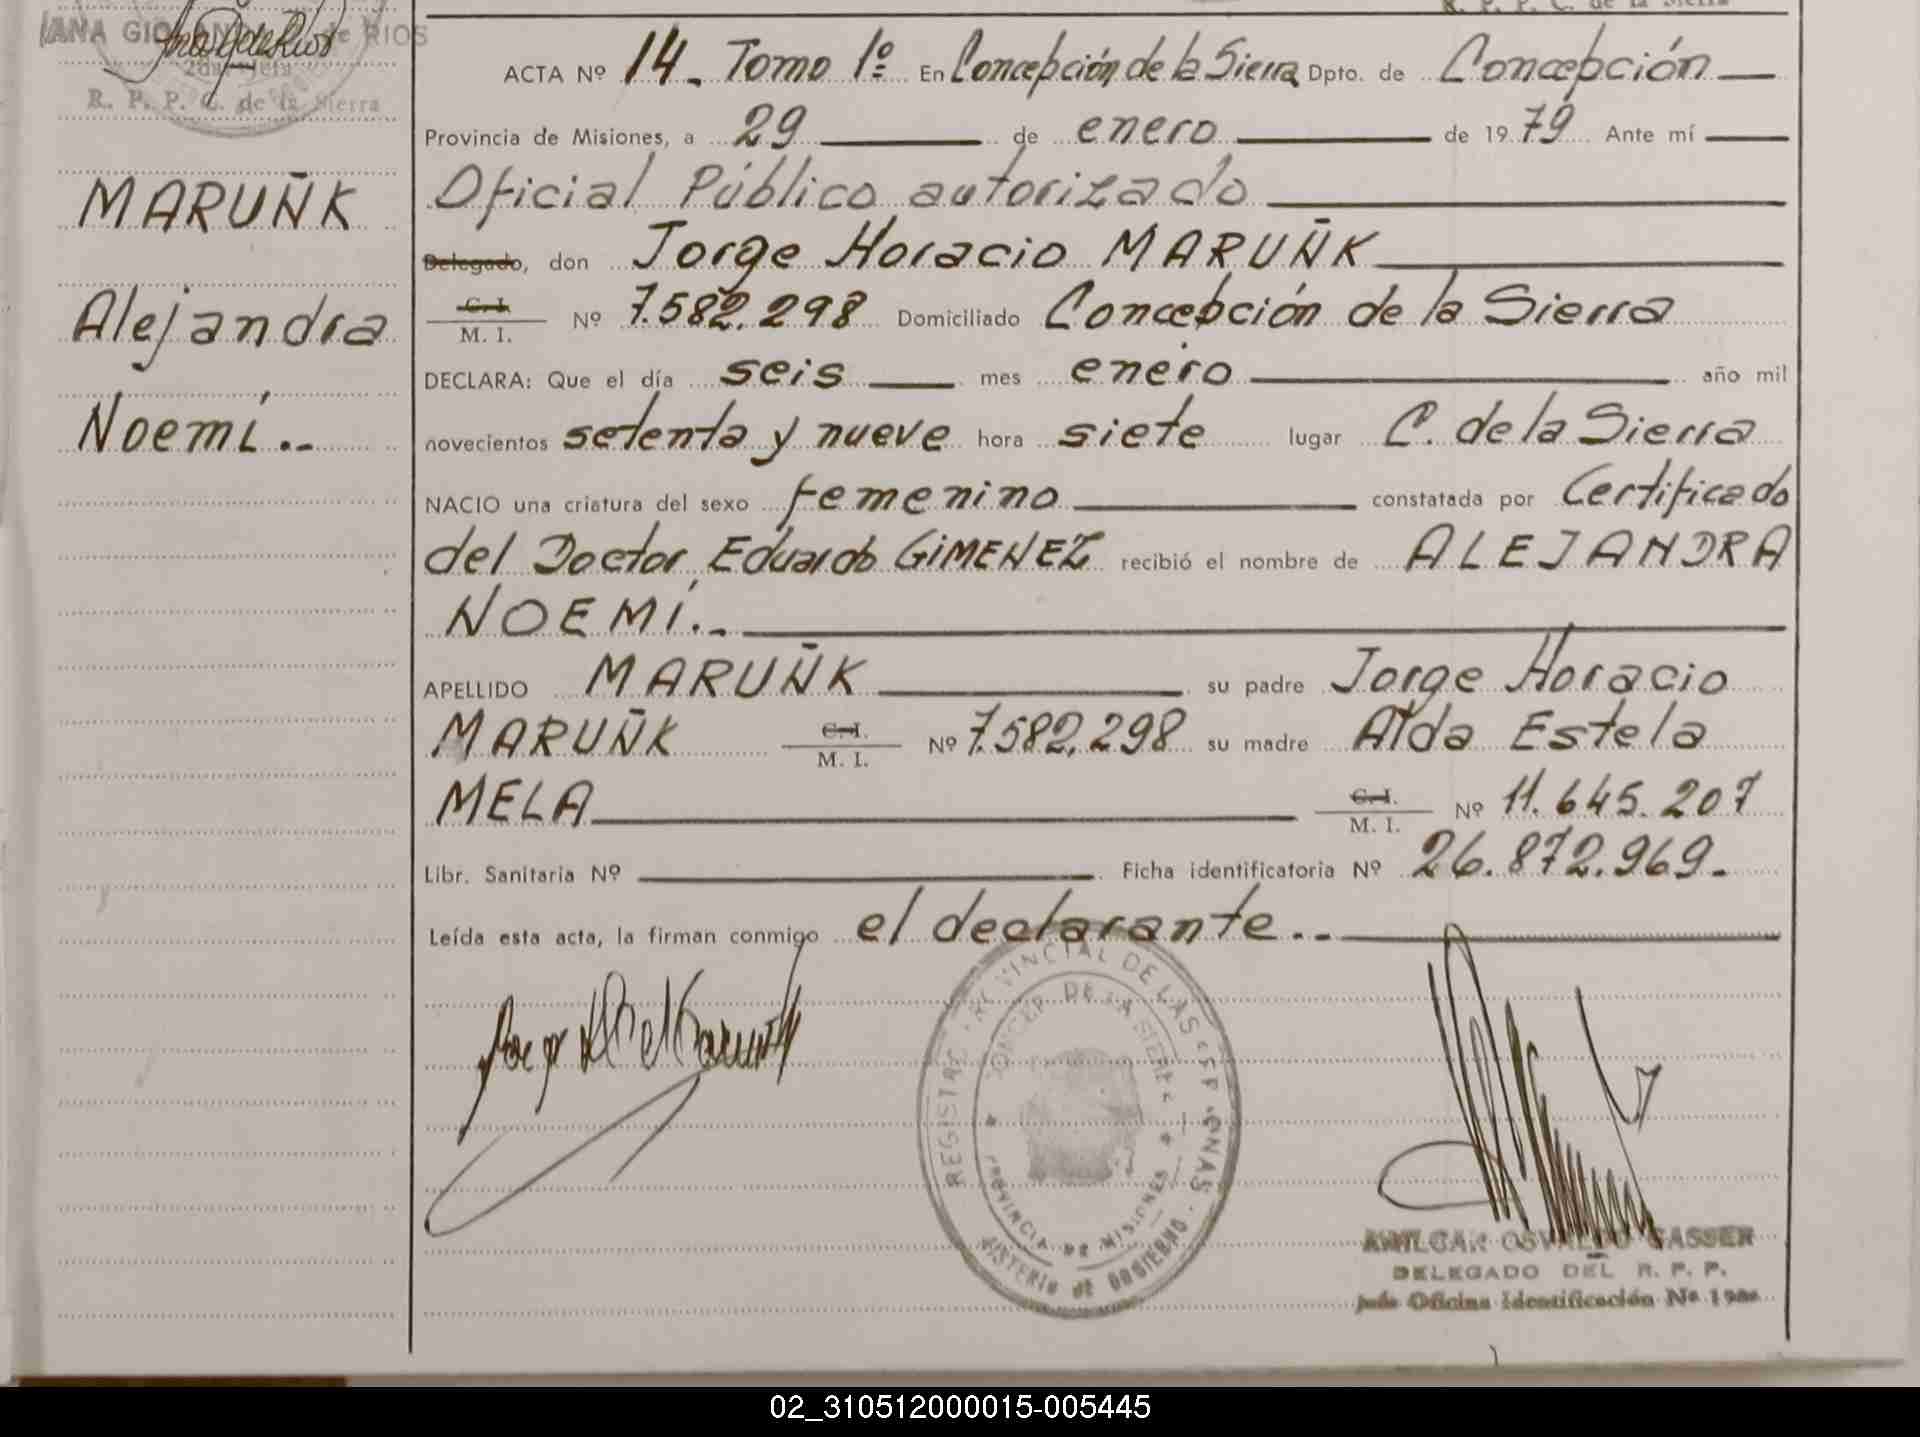 R. P. P. C. de la Sierra
de RIOS
2da. Jefa
R. P. P. C. de la Sierra
MARUÑK
Alejandra
Noemí.--
ACTA Nº 14.- Tomo 1º En Concepción de la Sierra Dpto. de Concepción
Provincia de Misiones, a 29 de enero de 1979 Ante mí
Oficial Público autorizado
Delegado, don Jorge Horacio MARUÑK
C. I.
M. I. Nº 7.582.298 Domiciliado Concepción de la Sierra
DECLARA: Que el día seis mes enero año mil
novecientos setenta y nueve hora siete lugar C. de la Sierra
NACIO una criatura del sexo femenino constatada por Certificado
del Doctor Eduardo GIMENEZ recibió el nombre de ALEJANDRA
NOEMÍ.-
APELLIDO MARUÑK su padre Jorge Horacio
MARUÑK C. I.
M. I. Nº 7.582.298 su madre Alda Estela
MELA C. I.
M. I. Nº 11.645.207
Libr. Sanitaria Nº Ficha identificatoria Nº 26.872.969.-
Leída esta acta, la firman conmigo el declarante.--
REGISTRO PROVINCIAL DE LAS PERSONAS
CONCEP. DE LA SIERRA
PROVINCIA DE MISIONES
MINISTERIO de GOBIERNO
AMILCAR OSVALDO GASSER
DELEGADO DEL R. P. P.
Jefe Oficina Identificación Nº
02_310512000015-005445